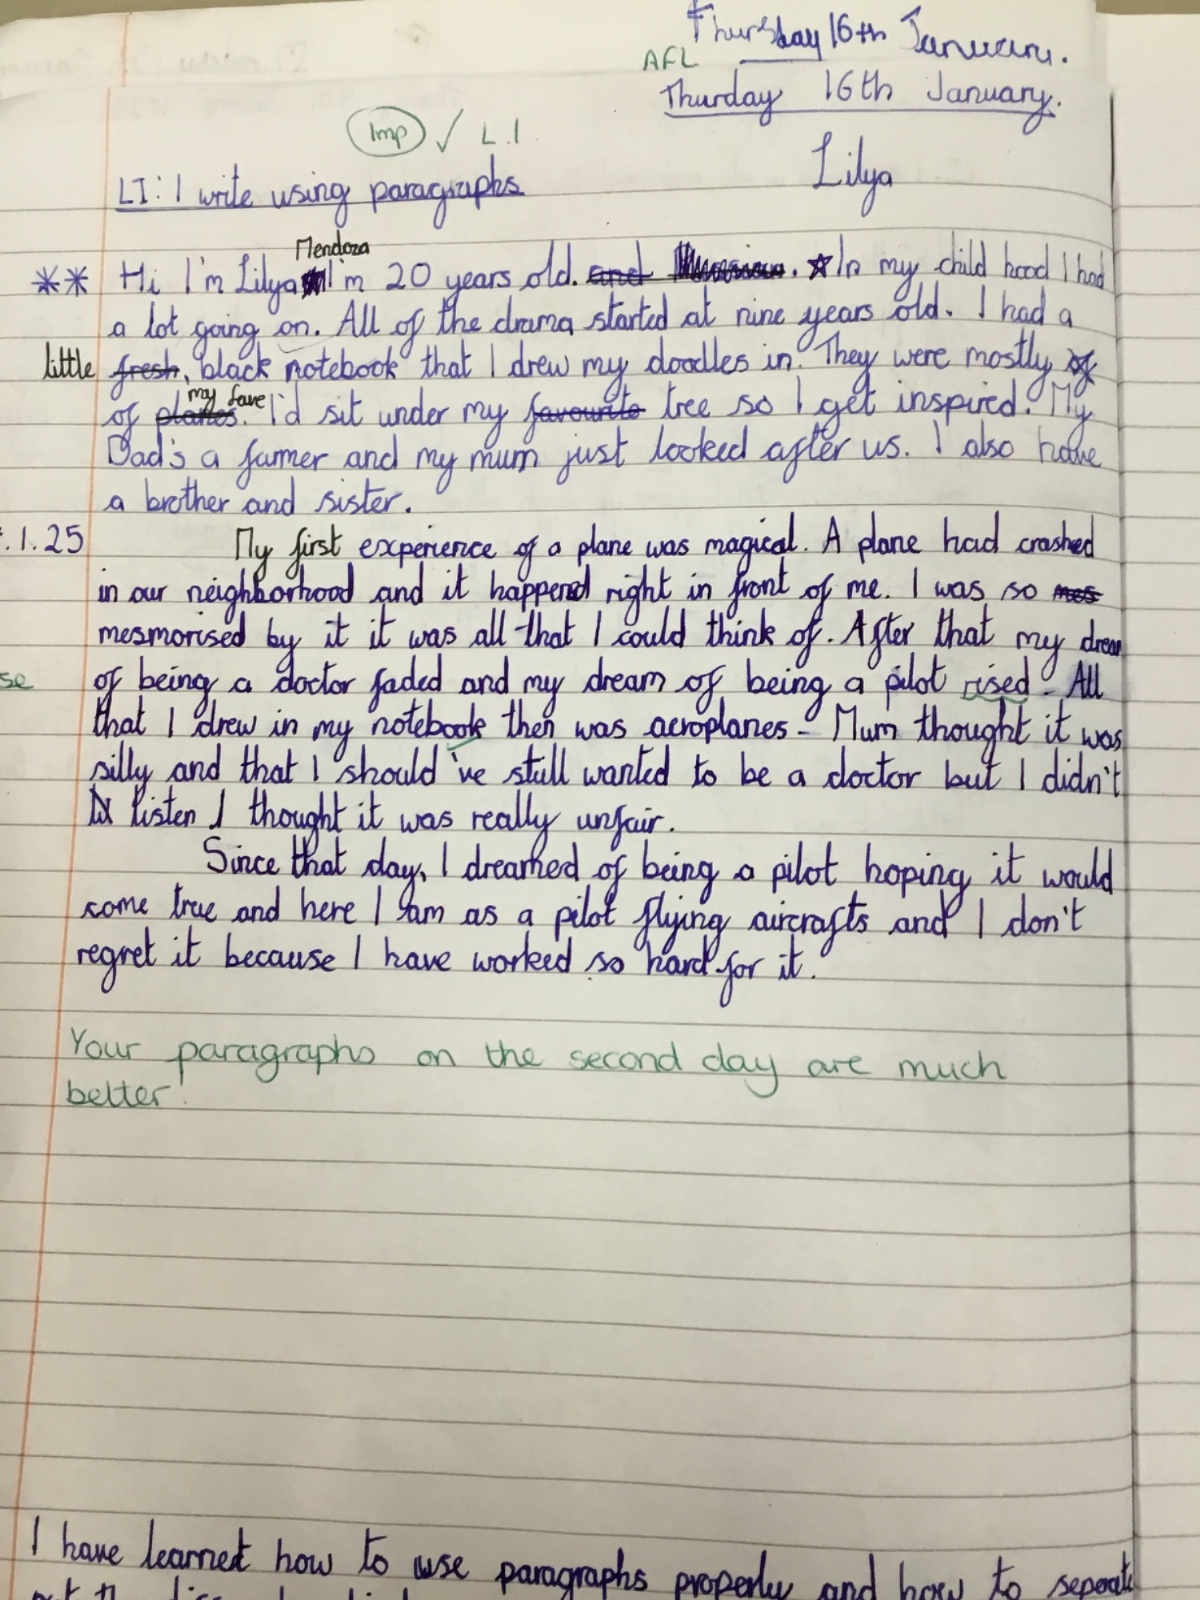 Thursday 16th January.
AFL
Thurday 16th January.
Imp ✓ L.I
Lilya
LI: I write using paragraphs
Mendoza
** Hi I'm Lilya I'm 20 years old. and . ☆ In my child hood I had
a lot going on. All of the drama started at nine years old. I had a
little fresh, black notebook that I drew my doodles in. They were mostly of
my fave
of planes. I'd sit under my favourite tree so I get inspired. My
Dad's a farmer and my mum just looked after us. I also have
a brother and sister.
.1.25 My first experience of a plane was magical. A plane had crashed
in our neighborhood and it happened right in front of me. I was so mes
mesmorised by it it was all that I could think of. After that my dream
se of being a doctor faded and my dream of being a pilot rised. All
that I drew in my notebook then was aeroplanes. Mum thought it was
silly and that I should 've still wanted to be a doctor but I didn't
listen I thought it was really unfair.
Since that day, I dreamed of being a pilot hoping it would
come true and here I am as a pilot flying aircrafts and I don't
regret it because I have worked so hard for it.
Your paragraphs on the second day are much
better!
I have learned how to use paragraphs properly and how to seperate